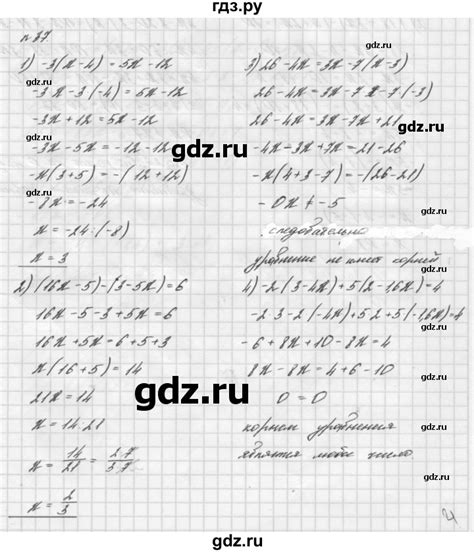 гдз.ру
n 87
1) -3(x-4) = 5x-12
-3x-3(-4) = 5x-12
-3x+12 = 5x-12
-3x-5x = -12-12
-x(3+5) = -(12+12)
-8x = -24
x = -24:(-8)
x = 3
2) (16x-5)-(3-5x) = 6
16x-5-3+5x = 6
16x+5x = 6+5+3
x(16+5) = 14
21x = 14
x = 14:21
x = 14/21 = 2·7/3·7
x = 2/3
3) 26-4x = 3x-7(x-3)
26-4x = 3x-7x-7(-3)
26-4x = 3x-7x+21
-4x-3x+7x = 21-26
-x(4+3-7) = -(26-21)
-0x ≠ -5
следовательно
уравнение не имеет корней
4) -2(3-4x)+5(2-16x) = 4
-2·3-2(-4x)+5·2+5(-1,6x) = 4
-6+8x+10-8x = 4
8x-8x = 4-4
0 = 0
корнем уравнения
является любое число.
gdz.ru
gdz.ru
gdz.ru
gdz.ru
gdz.ru
gdz.ru
gdz.ru
gdz.ru